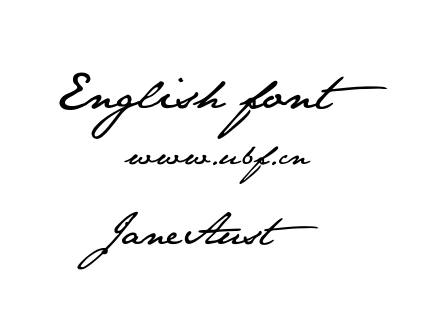 English font
www.ubf.cn
JaneAust